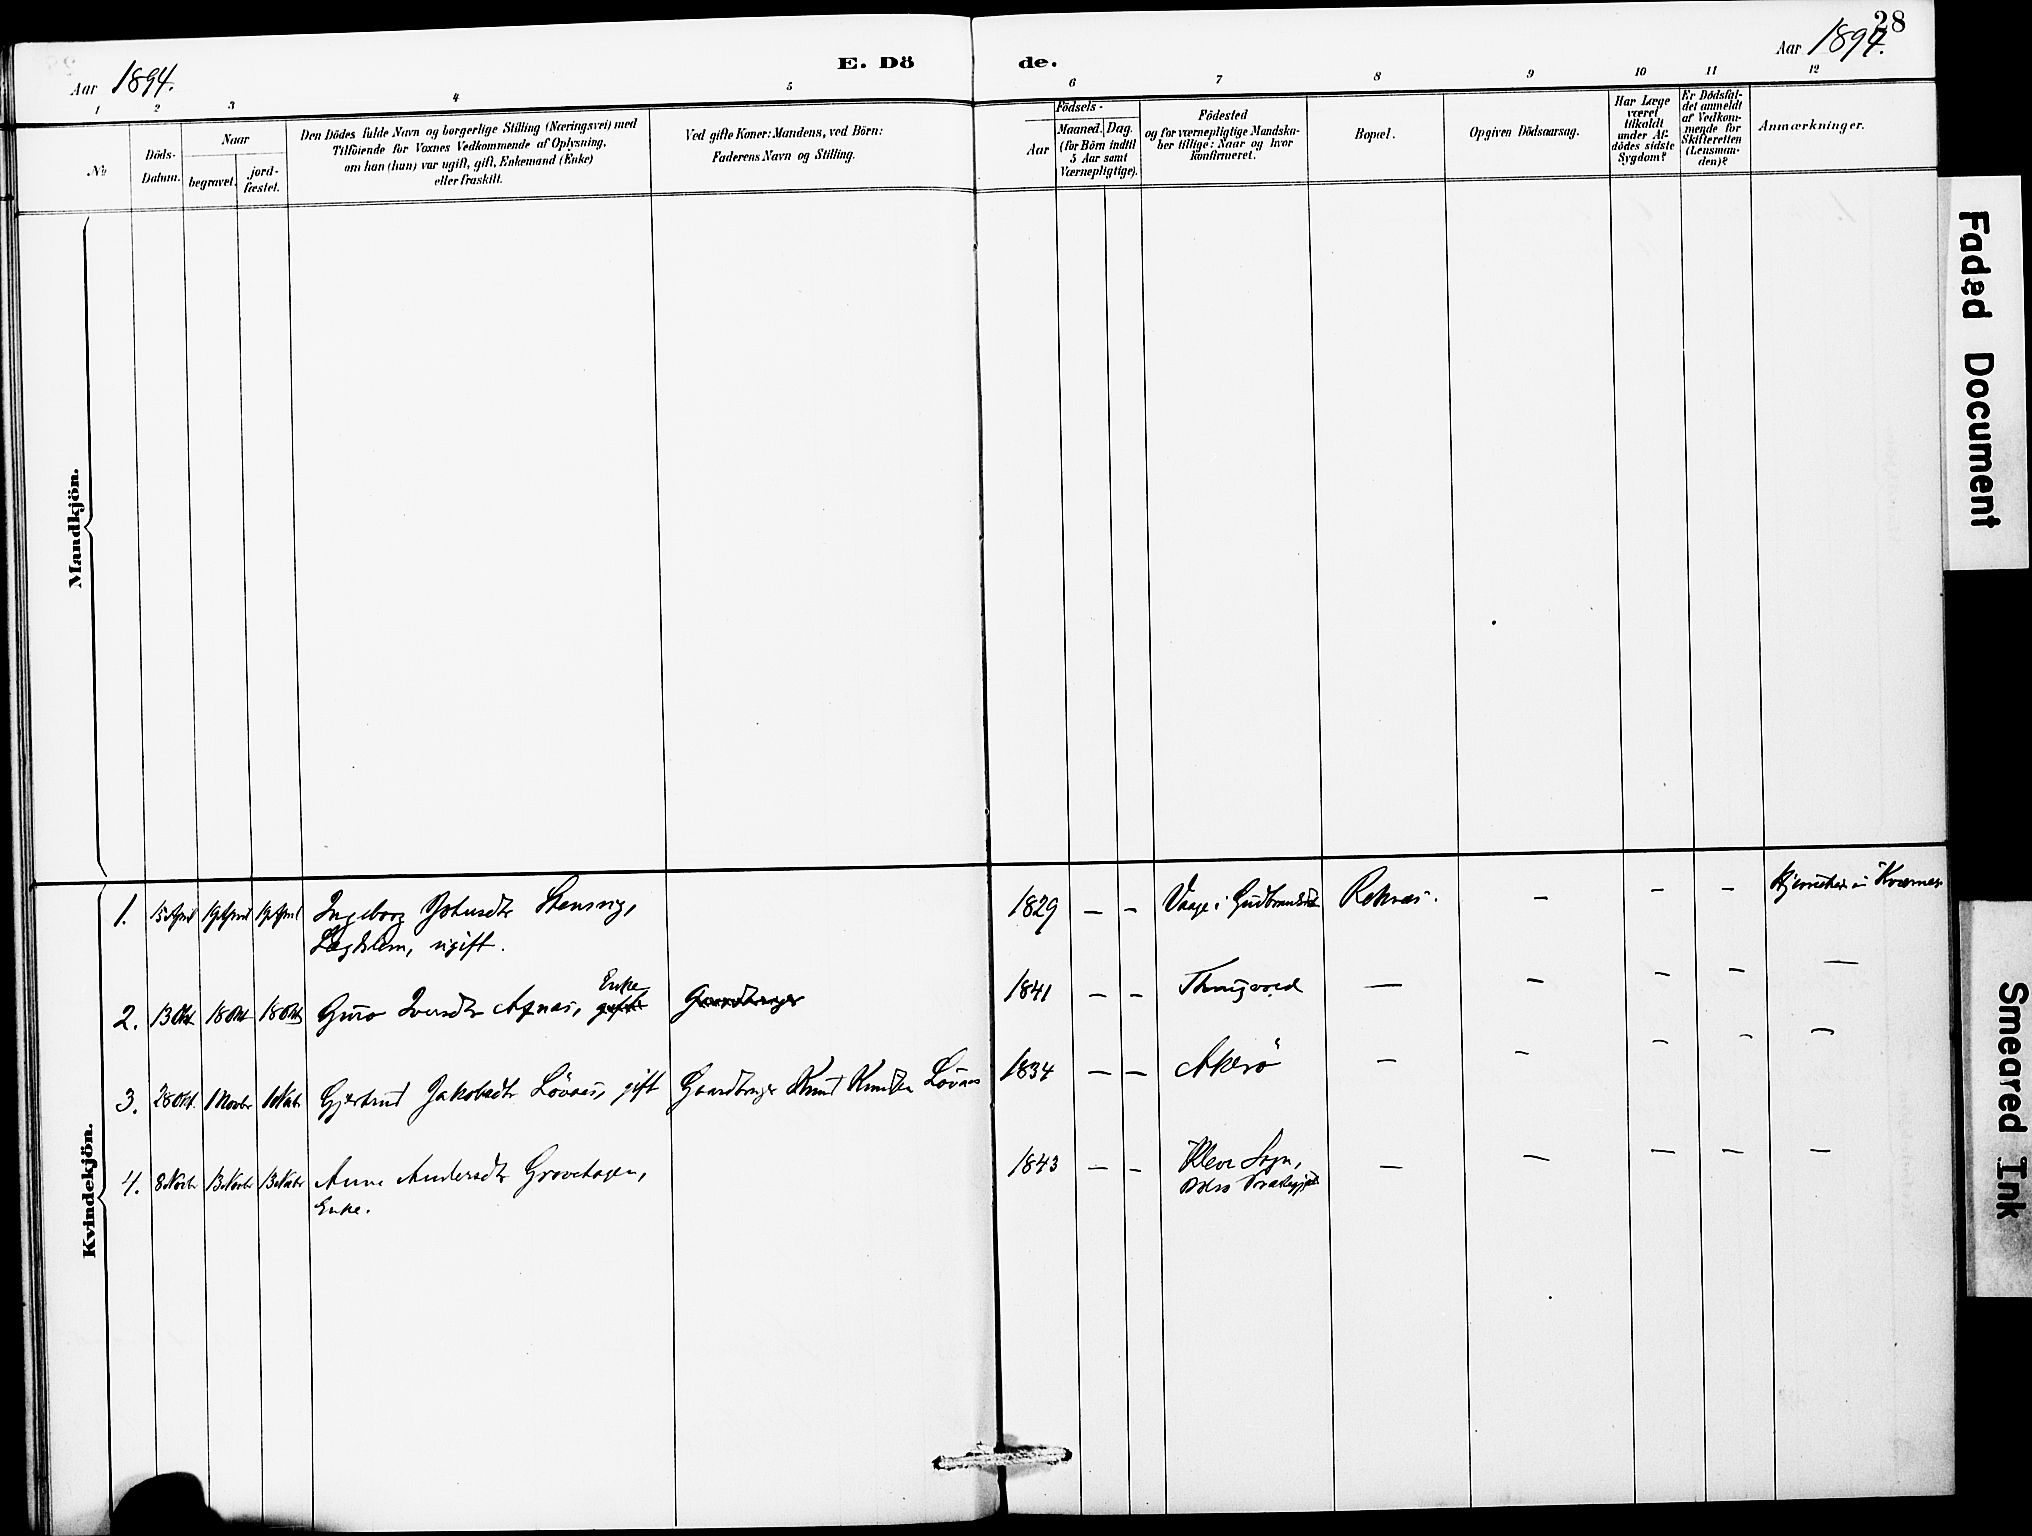 28
Aar 1894.
E. Dö
de.
Aar 1894.
1
2
3
4
5
6
7
8
9
10
11
12
No
Döds-
Datum.
Naar
begravet.
jord-
fæstet.
Den Dödes fulde Navn og borgerlige Stilling (Næringsvei) med
Tilföiende for Voxnes Vedkommende af Oplysning,
om han (hun) var ugift, gift, Enkemand (Enke)
eller fraskilt.
Ved gifte Koner: Mandens, ved Börn:
Faderens Navn og Stilling.
Födsels-
Aar
Maaned. Dag.
(for Börn indtil
5 Aar samt
Værnepligtige).
Födested
og for værnepligtige Mandska-
ber tillige: Naar og hvor
konfirmeret.
Bopæl.
Opgiven Dödsaarsag.
Har Læge
været
tilkaldt
under Af-
dödes sidste
Sygdom?
Er Dödsfal-
det anmeldt
af Vedkom-
mende for
Skifteretten
(Lensman-
den)?
Anmærkninger.
Mandkjön.
Kvindekjön.
1. 15 April 19 April 19 April Ingeborg
Lægdslem, ugift.
1829 — — Vaage i Gudbrandsdal Reknes. — — — i Kværnes
Enke
2. 13 Okt 18 Okt 18 Okt Guro Iversdtr gift
1841 — — Thingvold — — — — —
3. 28 Okt. 1 Novbr 1 Novbr Gjertrud Jakobsdtr Lövaas, gift Gaardbruger Knud Knudsen Lövaas
1834 — — Akerö — — — — —
4. 8 Novbr 13 Novbr 13 Novbr Anne Andersdtr Grovehagen,
Enke.
1843 — — Kleve Sogn, — — — — —
Faded Document
Smeared Ink